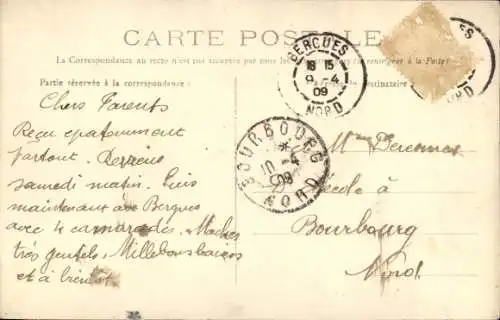 CARTE POSTALE
La Correspondance au recto n'est pas acceptée par tous les pays étrangers (se renseigner à la Poste)
Partie réservée à la correspondance
destinataire
BERGUES
18 15
9-4
09
NORD
BOURBOURG
10-4
09
NORD
Chers Parents
Reçu
partout.
samedi matin. Suis
maintenant à Bergues
avec 4 camarades.
très gentils, Mille bons baisers
et à bientôt
Mme
école à
Bourbourg
Nord